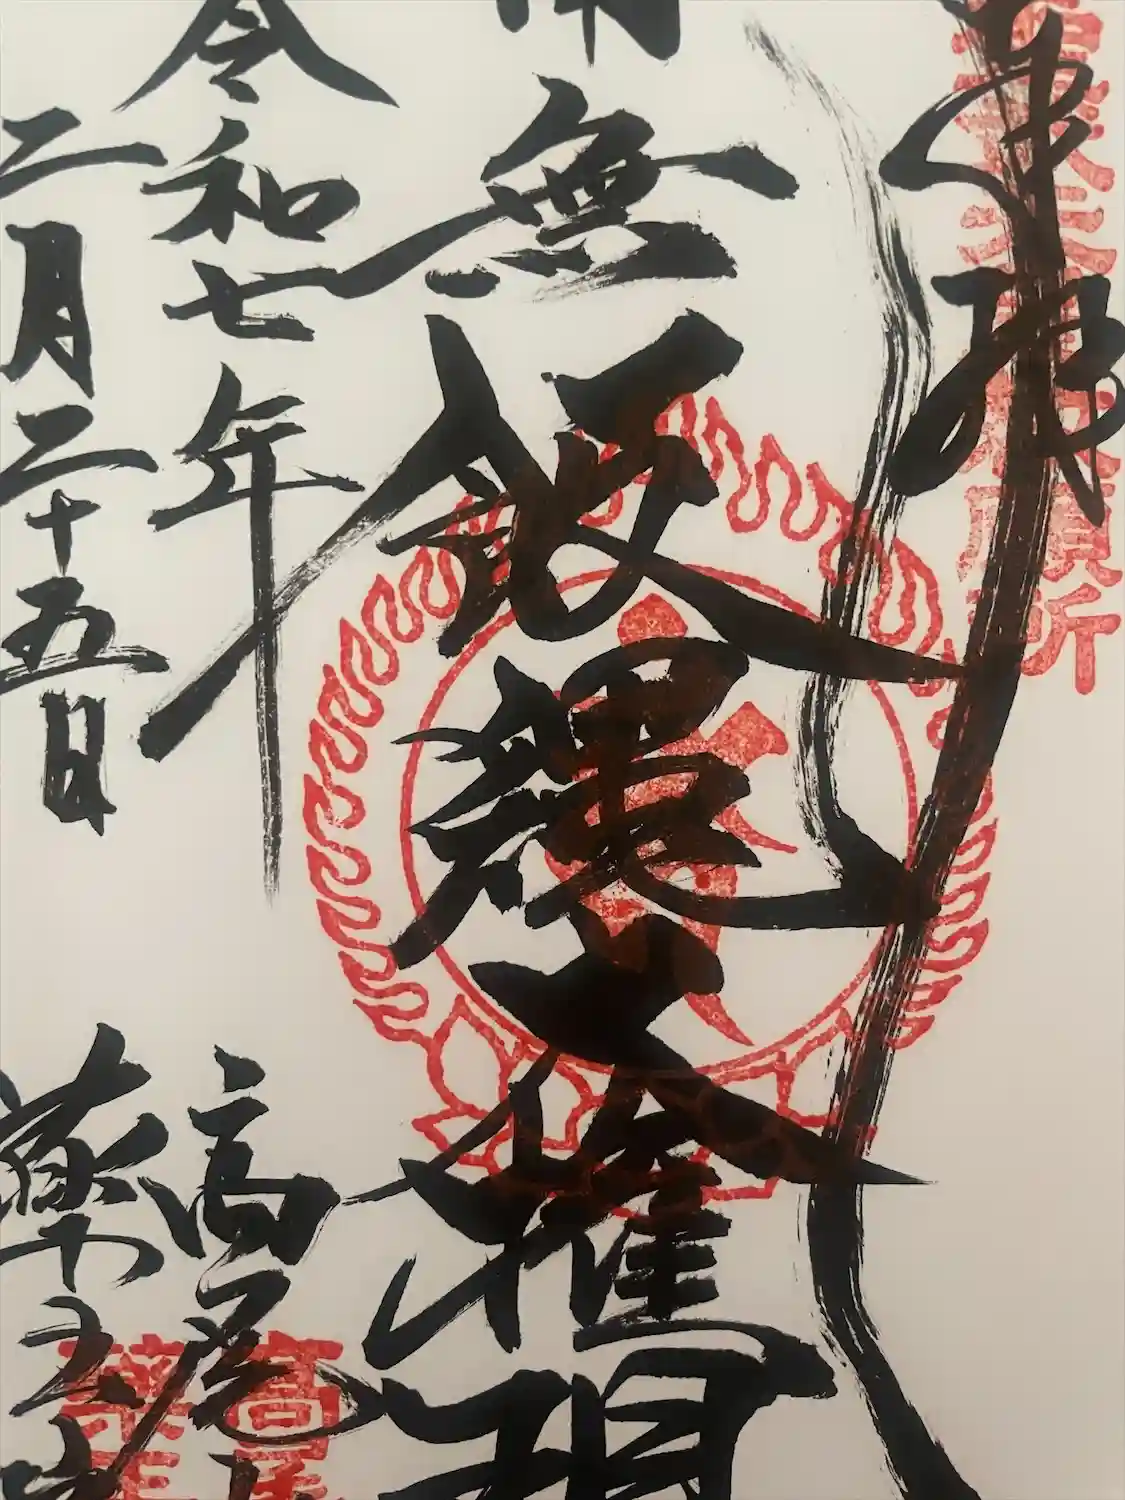 奉拝
南無飯縄大権現
令和七年
二月二十五日
高尾山
薬王院